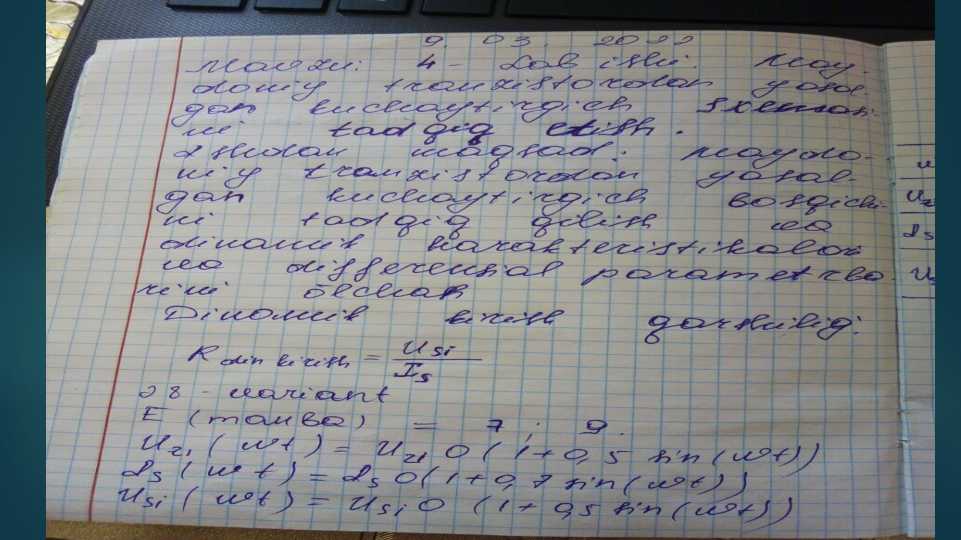 9. 03. 2022
Mavzu: 4- Lab ishi. May-
doniy tranzistordan yasal-
gan kuchaytirgich sxemasi-
ni tadqiq etish.
Ishdan maqsad: Maydo-
niy tranzistordan yasal-
gan kuchaytirgich bosqichi-
ni tadqiq qilish va
dinamik xarakteristikalar
va differensial parametrla-
rini o'lchash
Dinamik kirish qarshiligi:
R din kirish = Usi / Is
28 - variant
E (manba) = 7 ; 9.
Uzi (wt) = Uzi0 (1+0,5 sin(wt))
Is (wt) = Is0 (1+0,7 sin(wt))
Usi (wt) = Usi0 (1+0,5 sin(wt))